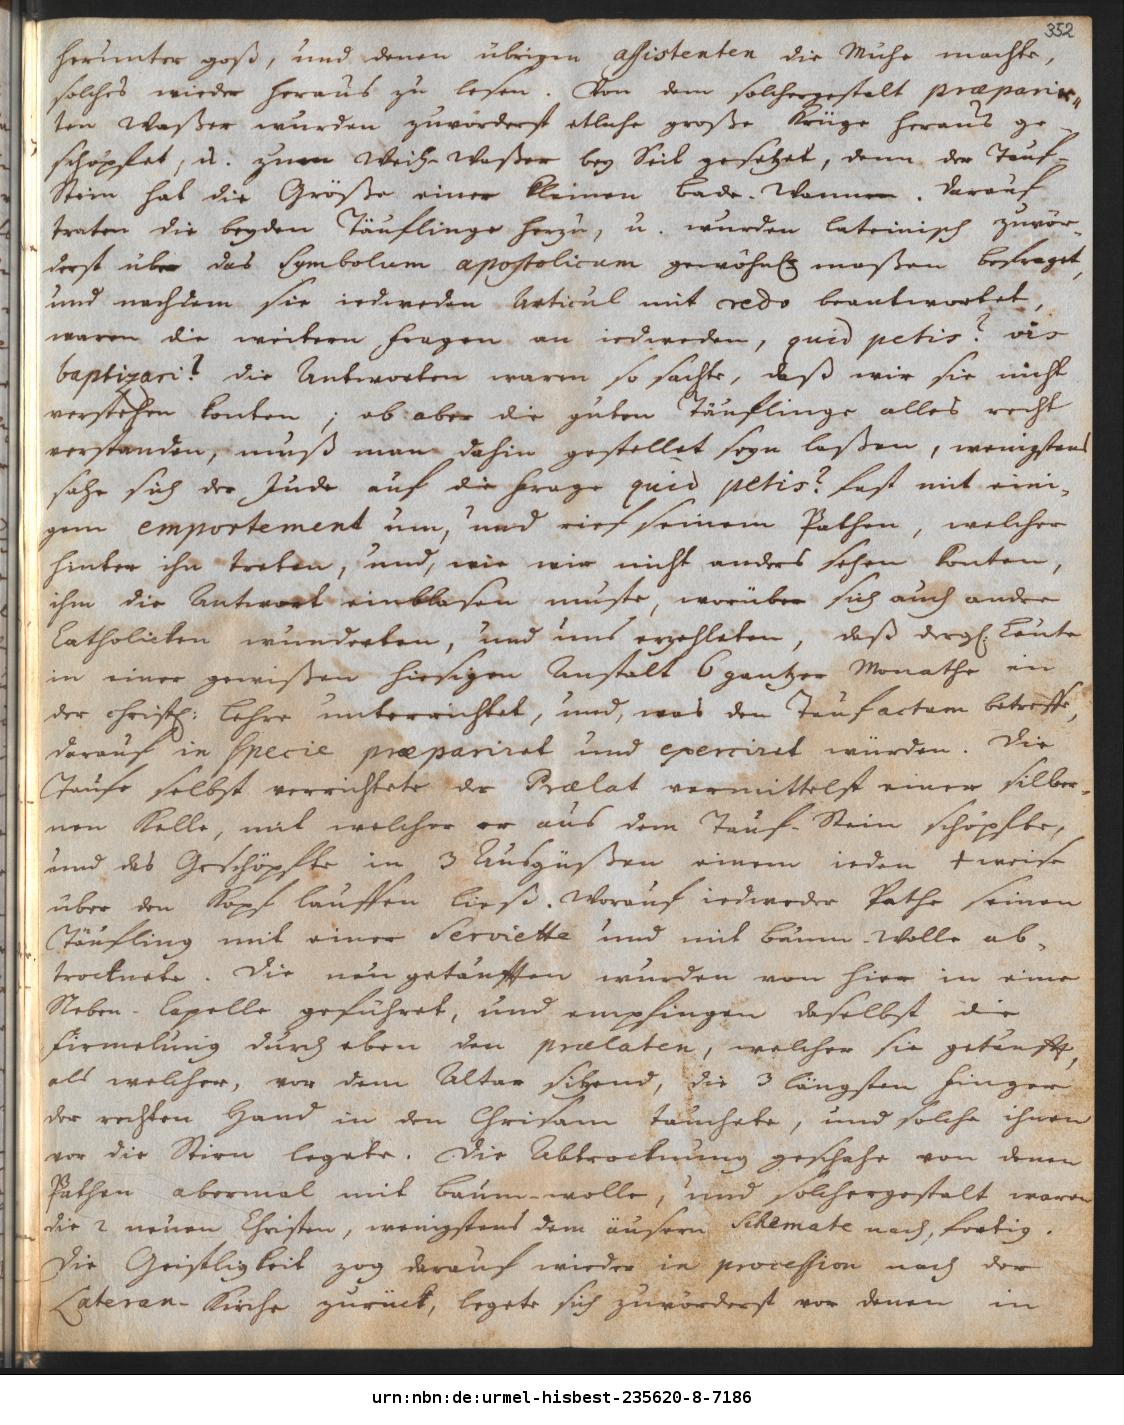 352
herunter goß, und denen übrigen assistenten die Mühe machte,
solches wieder heraus zu lesen. Von dem solchergestalt præparir-
ten Waßer wurden zuvörderst etliche große Krüge heraus ge-
schöpfet, u. zum Weih-Waßer bey Seit gesetzet, denn der Tauf-
Stein hat die Größe einer kleinen Bade-Wanne. Darauf
traten die beyden Täuflinge herzu, u. wurden lateinisch zuvör-
derst über das Symbolum apostolicum gewöhnl. maßen befraget,
und nachdem sie iedweden Articul mit credo beantwortet,
waren die weitern Fragen an iedweden, quid petis? vis
baptizari? die Antworten waren so sachte, daß wir sie nicht
verstehen konten; ob aber die guten Täuflinge alles recht
verstanden, muß man dahin gestellet seyn laßen, wenigstens
sahe sich der Jude auf die Frage quid petis? fast mit eini-
gem emportement um, und rief seinem Pathen, welcher
hinter ihn treten, und, wie wir nicht anders sehen konten,
ihm die Antwort einblasen muste, worüber sich auch andere
Catholicken wunderten, und uns erzehleten, daß dergl. Leute
in einer gewißen hiesigen Anstalt 6 gantzer Monathe in
der christl: Lehre unterrichtet, und, was den Taufactum betreffe,
darauf in specie præpariret und exerciret würden. Die
Taufe selbst verrichtete der Prælat vermittelst einer silber-
nen Kelle, mit welcher er aus dem Tauf-Stein schöpfte,
und das Geschöpfte in 3 Ausgüßen einem ieden † weise
über den Kopf lauffen ließ. Worauf iedweder Pathe seinen
Täufling mit einer Serviette und mit Baum-Wolle ab-
trocknete. Die neu getaufften wurden von hier in eine
Neben-Capelle geführet, und empfingen daselbst die
Firmelung durch eben den prælaten, welcher sie getaufft,
als welcher, vor dem Altar sitzend, die 3 längsten Finger
der rechten Hand in den Chrisam tauchete, und solche ihnen
vor die Stirn legete. Die Abtrocknung geschahe von denen
Pathen abermal mit Baum-wolle, und solchergestalt waren
die 2 neuen Christen, wenigstens dem äusern Schemate nach, fertig.
Die Geistligkeit zog darauf wieder in procession nach der
Lateran-Kirche zurück, legete sich zuvörderst vor denen in
urn:nbn:de:urmel-hisbest-235620-8-7186